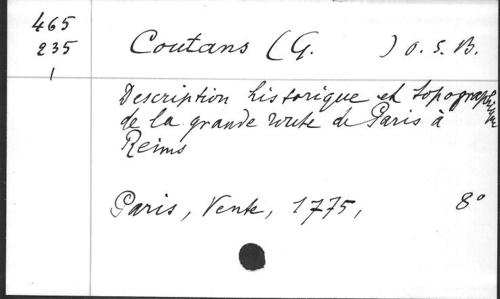 465
235
1
Coutans (G. ) O. S. B.
Description historique et topographique
de la grande route de Paris à
Reims
Paris, Vente, 1775, 8°